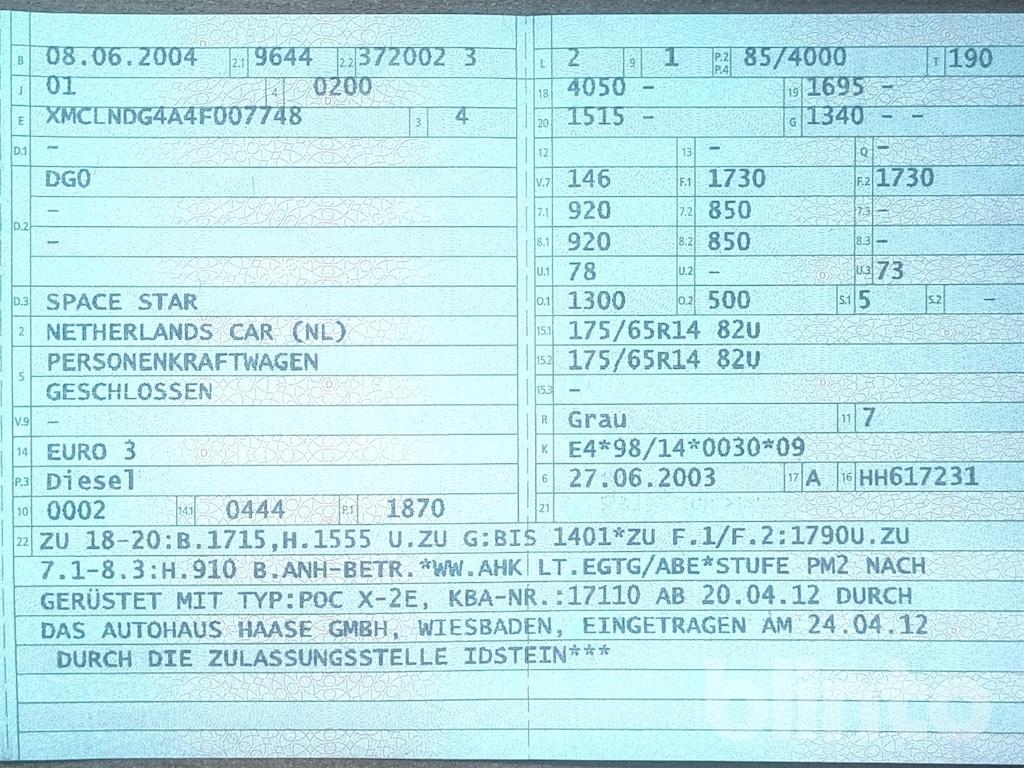 B 08.06.2004 2.1 9644 2.2 372002 3
J 01 4 0200
E XMCLNDG4A4F007748 3 4
D.1 –
DG0
D.2 –
–
D.3 SPACE STAR
2 NETHERLANDS CAR (NL)
5 PERSONENKRAFTWAGEN
GESCHLOSSEN
V.9 –
14 EURO 3
P.3 Diesel
10 0002 14.1 0444 P.1 1870
L 2 9 1 P.2 P.4 85/4000 T 190
18 4050 – 19 1695 –
20 1515 – G 1340 – –
12 13 – Q –
V.7 146 F.1 1730 F.2 1730
7.1 920 7.2 850 7.3 –
8.1 920 8.2 850 8.3 –
U.1 78 U.2 – U.3 73
O.1 1300 O.2 500 S.1 5 S.2 –
15.1 175/65R14 82U
15.2 175/65R14 82U
15.3 –
R Grau 11 7
K E4*98/14*0030*09
6 27.06.2003 17 A 16 HH617231
21
22 ZU 18-20:B.1715,H.1555 U.ZU G:BIS 1401*ZU F.1/F.2:1790U.ZU
7.1-8.3:H.910 B.ANH-BETR.*WW.AHK LT.EGTG/ABE*STUFE PM2 NACH
GERÜSTET MIT TYP:POC X-2E, KBA-NR.:17110 AB 20.04.12 DURCH
DAS AUTOHAUS HAASE GMBH, WIESBADEN, EINGETRAGEN AM 24.04.12
DURCH DIE ZULASSUNGSSTELLE IDSTEIN***
blinto